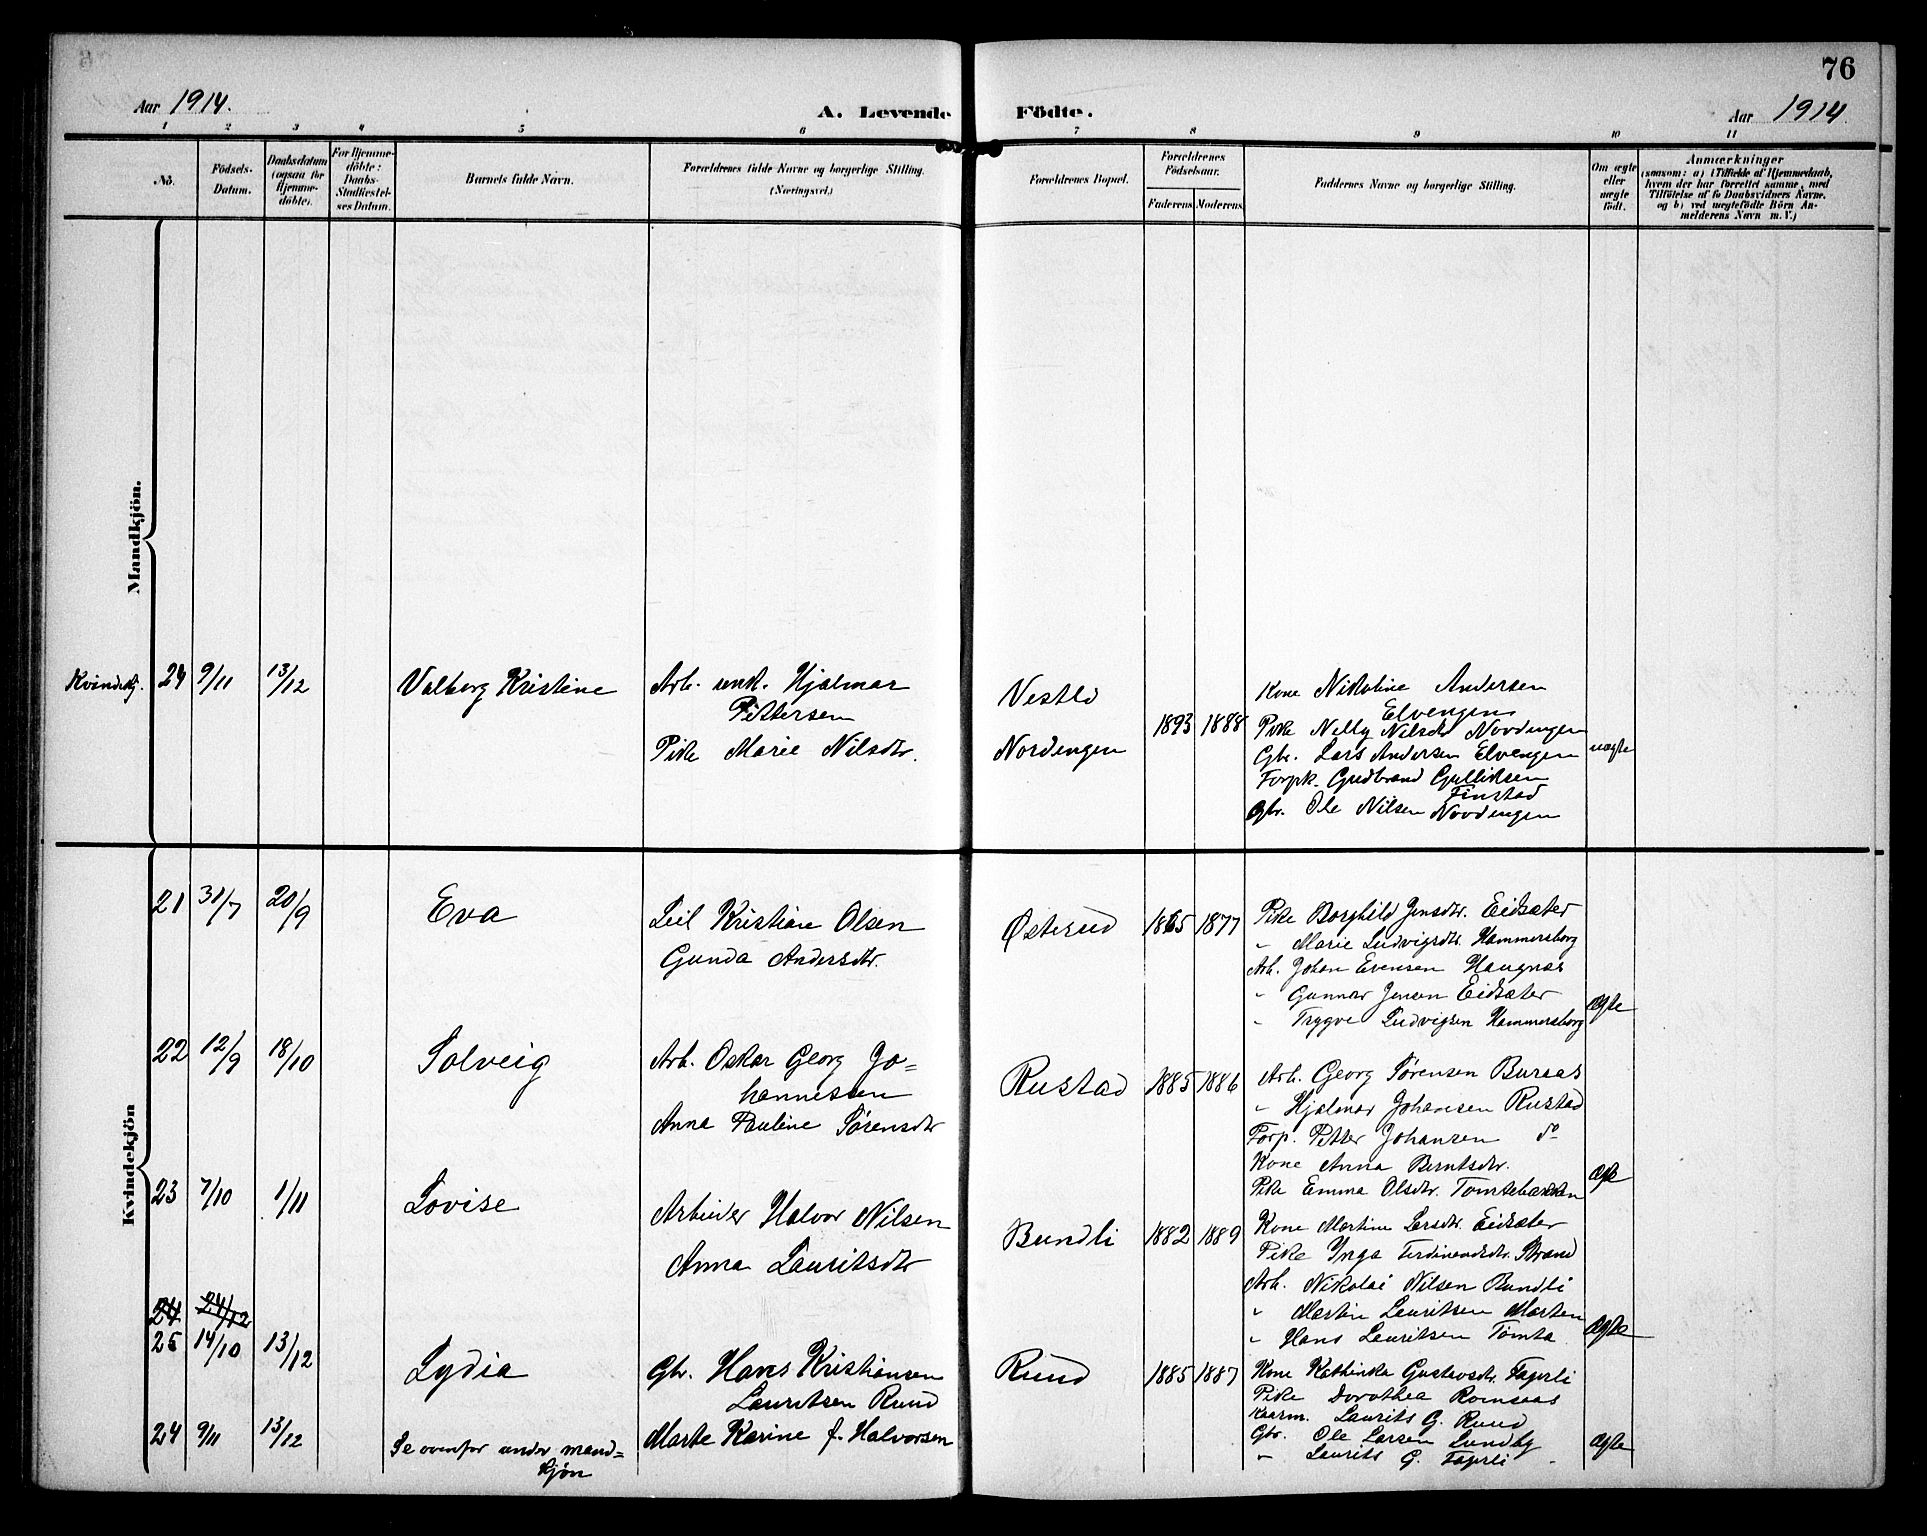 76
Aar 1914.
A. Levende Födte.
Aar 1914.
1 2 3 4 5 6 7 8 9 10 11
No.
Födsels-
Datum.
Daabsdatum
(ogsaa for
Hjemme-
döbte).
For Hjemme-
döbte:
Daabs-
Stadfæstel-
ses Datum.
Barnets fulde Navn.
Forældrenes fulde Navne og borgerlige Stilling.
(Næringsvei.)
Forældrenes Bopæl.
Forældrenes
Födselsaar.
Faderens. Moderens.
Faddernes Navne og borgerlige Stilling.
Om ægte
eller
uægte
født.
Anmærkninger
(saasom: a) i Tilfælde af Hjemmedaab,
hvem der har forrettet samme, med
Tilföielse af to Daabsvidners Navne,
og b) ved uægtefödte Börn An-
melderens Navn m. V.)
Mandkjön.
Kvindekj. 24 9/11 13/12 Valborg Kristine
Arb. unk. Hjalmar
Pettersen
Pike Marie Nilsdtr.
Vestlo
Nordengen
1893 1888
Kone Nikoline Andersen
Elvengen
Pike Nelly Nilsdtr Nordengen
Gbr. Lars Andersen Elvengen
Forpk. Gudbrand Gulliksen
Finstad
Gbr. Ole Nilsen Nordengen
uægte
Kvindekjön
21 31/7 20/9 Eva
Leil Kristian Olsen
Gunda Andersdtr.
Østerud 1865 1877
Pike Borghild Jensdtr. Eidsæter
" Marie Ludvigsdtr. Hammersborg
Arb. Johan Evensen Haugnæs
" Gunnar Jensen Eidsæter
" Trygve Ludvigsen Hammersborg
ægte
22 12/9 18/10 Solveig
Arb. Oskar Georg Jo=
hannessen
Anna Pauline Sørensdtr
Rustad 1885 1886
Arb. Georg Sørensen Buraas
" Hjalmar Johansen Rustad
Forp. Petter Johansen do
Kone Anna Berntsdtr.
Pike Emma Olsdtr. Tomtebakken
ægte
23 7/10 1/11 Lovise
Arbeider Halvor Nilsen
Anna Lauritsdtr
Bundli 1882 1889
Kone Martine Larsdtr. Eidsæter
Pike Ynga Ferdinandsdtr. Strand
Arb. Nikolai Nilsen Bundli
" Martin Lauritsen Morten
" Hans Lauritsen Tomta
ægte
24 24/12
25 14/10 13/12 Lydia
Gbr. Hans Kristiansen
Lauritsen Ruud
Marte Karine f. Halvorsen
Ruud 1885 1887
Kone Kathinka Gustavsdtr. Fagerli
Pike Dorothea Romsaas
Kaarm. Laurits G. Ruud
Gbr. Ole Larsen Lundby
" Laurits G. Fagerli
ægte
24 9/11 13/12 Se ovenfor under mand=
kjøn